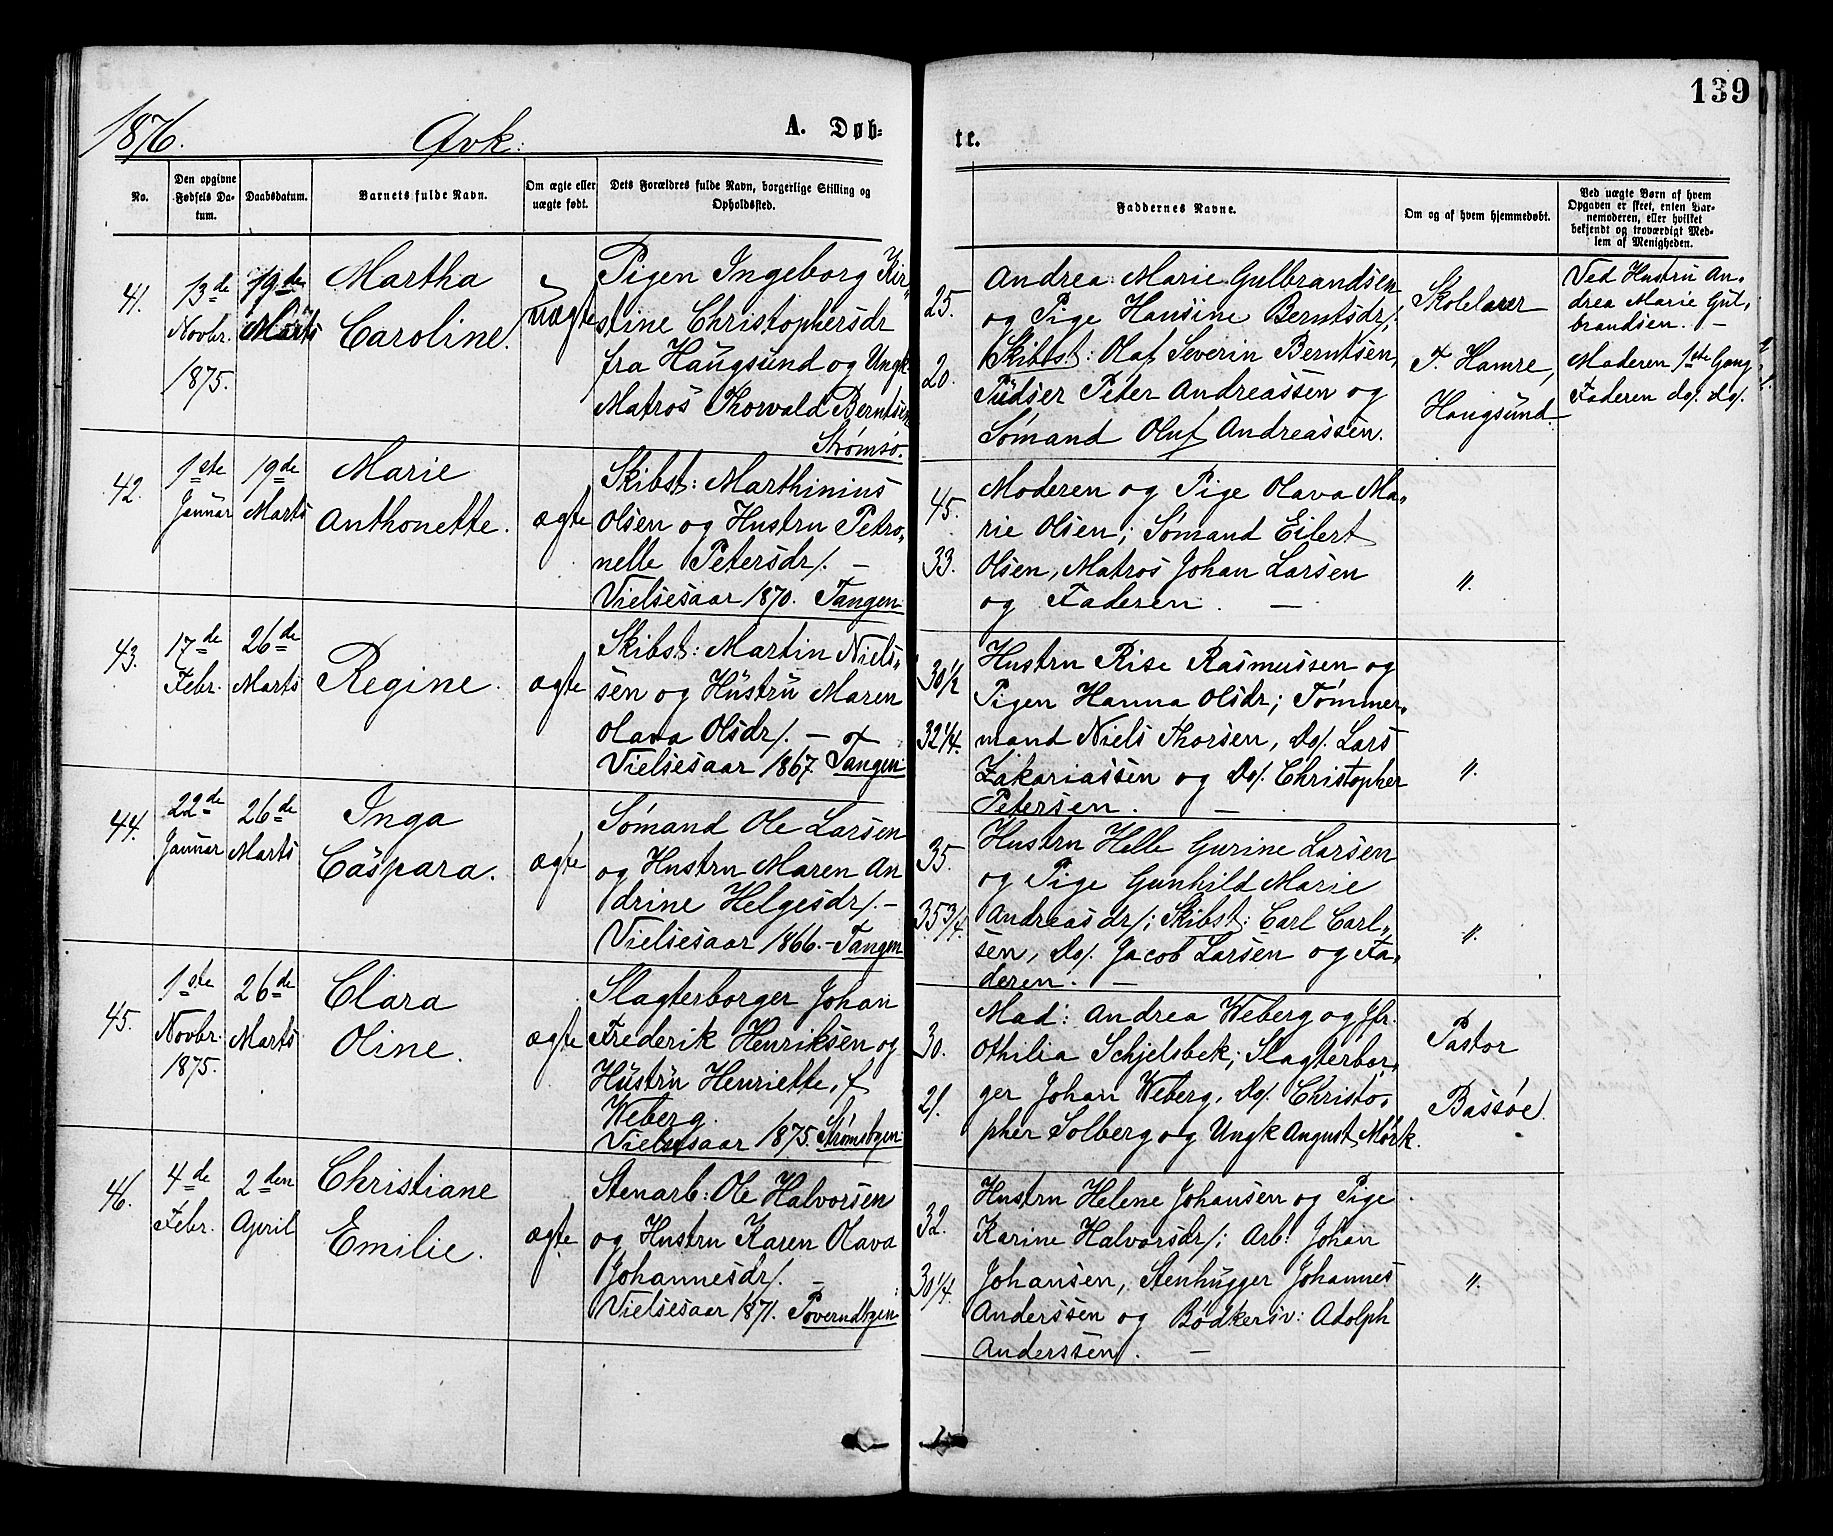 139
1876.
Qvk:
A. Døb-
te.
No.
Den opgivne
Fødsels Da-
tum.
Daabsdatum.
Barnets fulde Navn.
Om ægte eller
uægte født.
Dets Forældres fulde Navn, borgerlige Stilling og
Opholdssted.
Faddernes Navne.
Om og af hvem hjemmedøbt.
Ved uægte Børn af hvem
Opgaven er skeet, enten Bar-
nemoderen, eller hvilket
bekjendt og troværdigt Med-
lem af Menigheden.
41.
13de
Novbr.
1875.
19de
Marts
Martha
Caroline.
uægte
Pigen Ingeborg Kir-
stine Christophersdr
fra Haugsund og Ungk
Matros Thorvald Berntsen
Strømsø.
25.
20.
Andrea Marie Gulbrandsen
og Pige Hansine Berntsdr/.
Skibst: Olaf Severin Berntsen,
Pudser Peter Andreassen og
Sømand Oluf Andreassen.
Skolelærer
T. Hamre,
Haugsund.
Ved Hustru An-
drea Marie Gul-
brandsen. –
Moderen 1ste Gang
Faderen do/. do/.
42.
1ste
Januar
19de
Marts
Marie
Anthonette.
ægte
Skibst: Marthinius
Olsen og Hustru Petro-
nelle Petersdr/. –
Vielsesaar 1870. Tangen
45.
33.
Moderen og Pige Olava Ma-
rie Olsen; Sømand Eilert
Olsen, Matros Johan Larsen
og Faderen. –
"
43.
17de
Febr.
26de
Marts
Regine.
ægte
Skibst: Martin Niels-
sen og Hustru Maren
Olava Olsdr/. –
Vielsesaar 1867. Tangen
30 1/2
32 1/4.
Hustru Rise Rasmussen og
Pigen Hanna Olsdr; Tømmer-
mand Niels Thorsen, Do/. Lars
Zakariassen og Do/. Christopher
Petersen. –
"
44.
22de
Januar
26de
Marts
Inga
Caspara.
ægte
Sømand Ole Larsen
og Hustru Maren An
drine Helgesdr/. –
Vielsesaar 1866. – Tangen
35.
35 3/4.
Hustru Helle Gurine Larsen
og Pige Gunhild Marie
Andreasdr/; Skibst: Carl Carl-
sen, Do/. Jacob Larsen og Fa-
deren. –
"
45.
1ste
Novbr.
1875.
26de
Marts
Clara
Oline.
ægte
Slagterborger Johan
Frederik Henriksen og
Hustru Henriette, f
Weberg.
Vielsesaar 1875. Strømsbgen
30.
21.
Mad: Andrea Weberg og Jfr.
Othilia Schjelsbek; Slagterbor-
ger Johan Weberg, Do/. Christo-
pher Solberg og Ungk August Mørk.
Pastor
Bassøe.
46.
4de
Febr.
2den
April
Christiane
Emilie.
ægte
Stenarb: Ole Halvorsen
og Hustru Karen Olava
Johannesdr/. –
Vielsesaar 1871. Poverudbgen
32.
30 1/4.
Hustru Helene Johansen og Pige
Karine Halvorsdr/; Arb: Johan
Johansen, Stenhugger Johannes
Anderssen og Bødkersv: Adolph
Anderssen. –
"